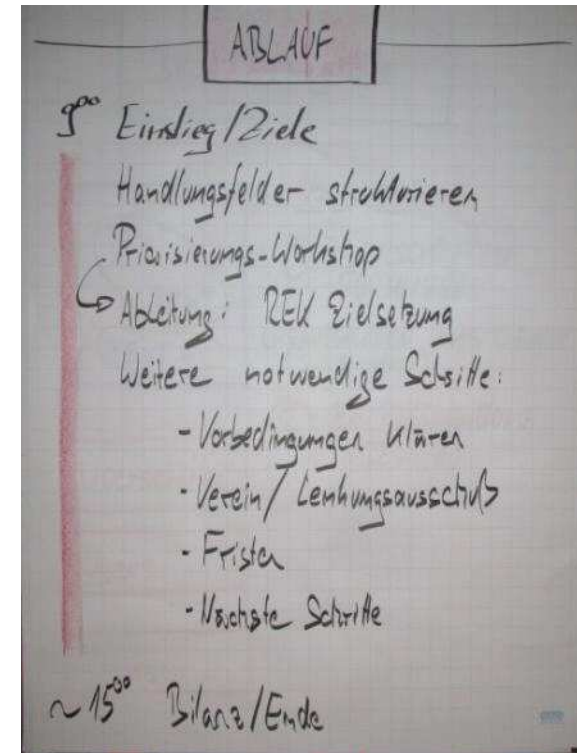 ABLAUF
9⁰⁰ Einstieg/Ziele
Handlungsfelder strukturieren
Priorisierungs-Workshop
Ableitung: REK Zielsetzung
Weitere notwendige Schritte:
- Vorbedingungen klären
- Verein/Lenkungsausschuß
- Fristen
- Nächste Schritte
~ 15⁰⁰ Bilanz/Ende